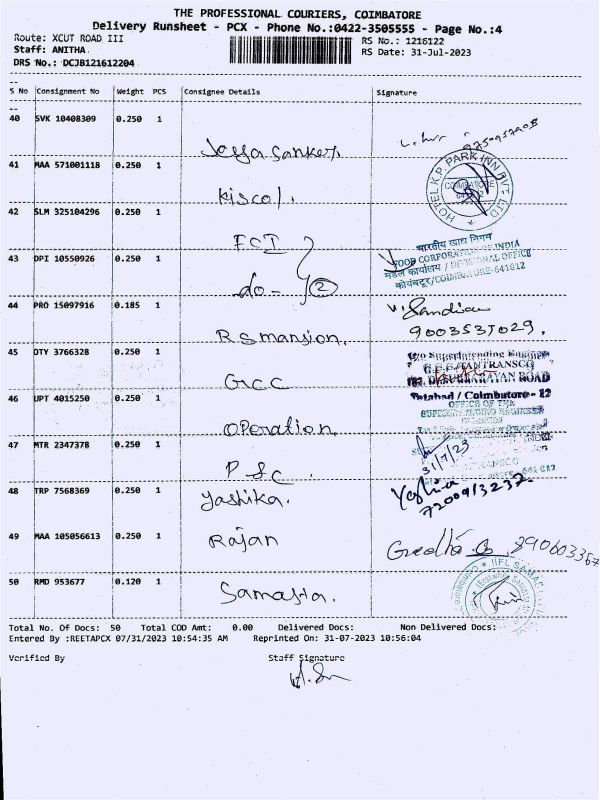 THE PROFESSIONAL COURIERS, COIMBATORE
Delivery Runsheet - PCX - Phone No.:0422-3505555 - Page No.:4
Route: XCUT ROAD III
RS No.: 1216122
Staff: ANITHA
RS Date: 31-Jul-2023
DRS No.: DCJB121612204
S No Consignment No Weight PCS Consignee Details Signature
40 SVK 10408309 0.250 1
41 MAA 571001118 0.250 1
HOTEL K.P. PARK INN PVT LTD
COIMBATORE
Kiscol.
42 SLM 325104296 0.250 1
FCI
भारतीय खाद्य निगम
FOOD CORPORATION OF INDIA
43 DPI 10550926 0.250 1
मंडल कार्यालय / DIVISIONAL OFFICE
कोयंबटूर/COIMBATORE-641012
do- 2
44 PRO 15097916 0.185 1
R S mansion.
9003537029.
45 DTY 3766328 0.250 1
TANTRANSCO
GCC
Tatabad / Coimbatore - 12
46 UPT 4015250 0.250 1
OFFICE OF THE
Operation
47 MTR 2347378 0.250 1
31/7/23
P S C.
48 TRP 7568369 0.250 1
Yashika.
7200913237
49 MAA 105056613 0.250 1
Rajan
50 RMD 953677 0.120 1
Total No. Of Docs: 50 Total COD Amt: 0.00 Delivered Docs: Non Delivered Docs:
Entered By :REETAPCX 07/31/2023 10:54:35 AM Reprinted On: 31-07-2023 10:56:04
Verified By Staff Signature